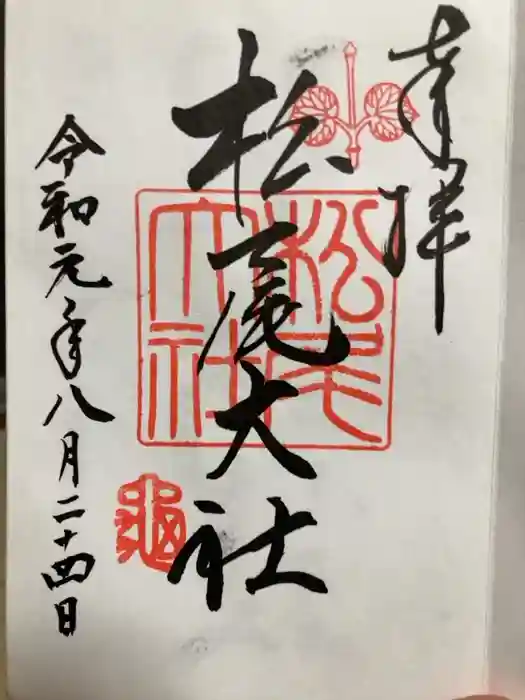 奉拝
松尾大社
松尾大社
亀
令和元年八月二十四日